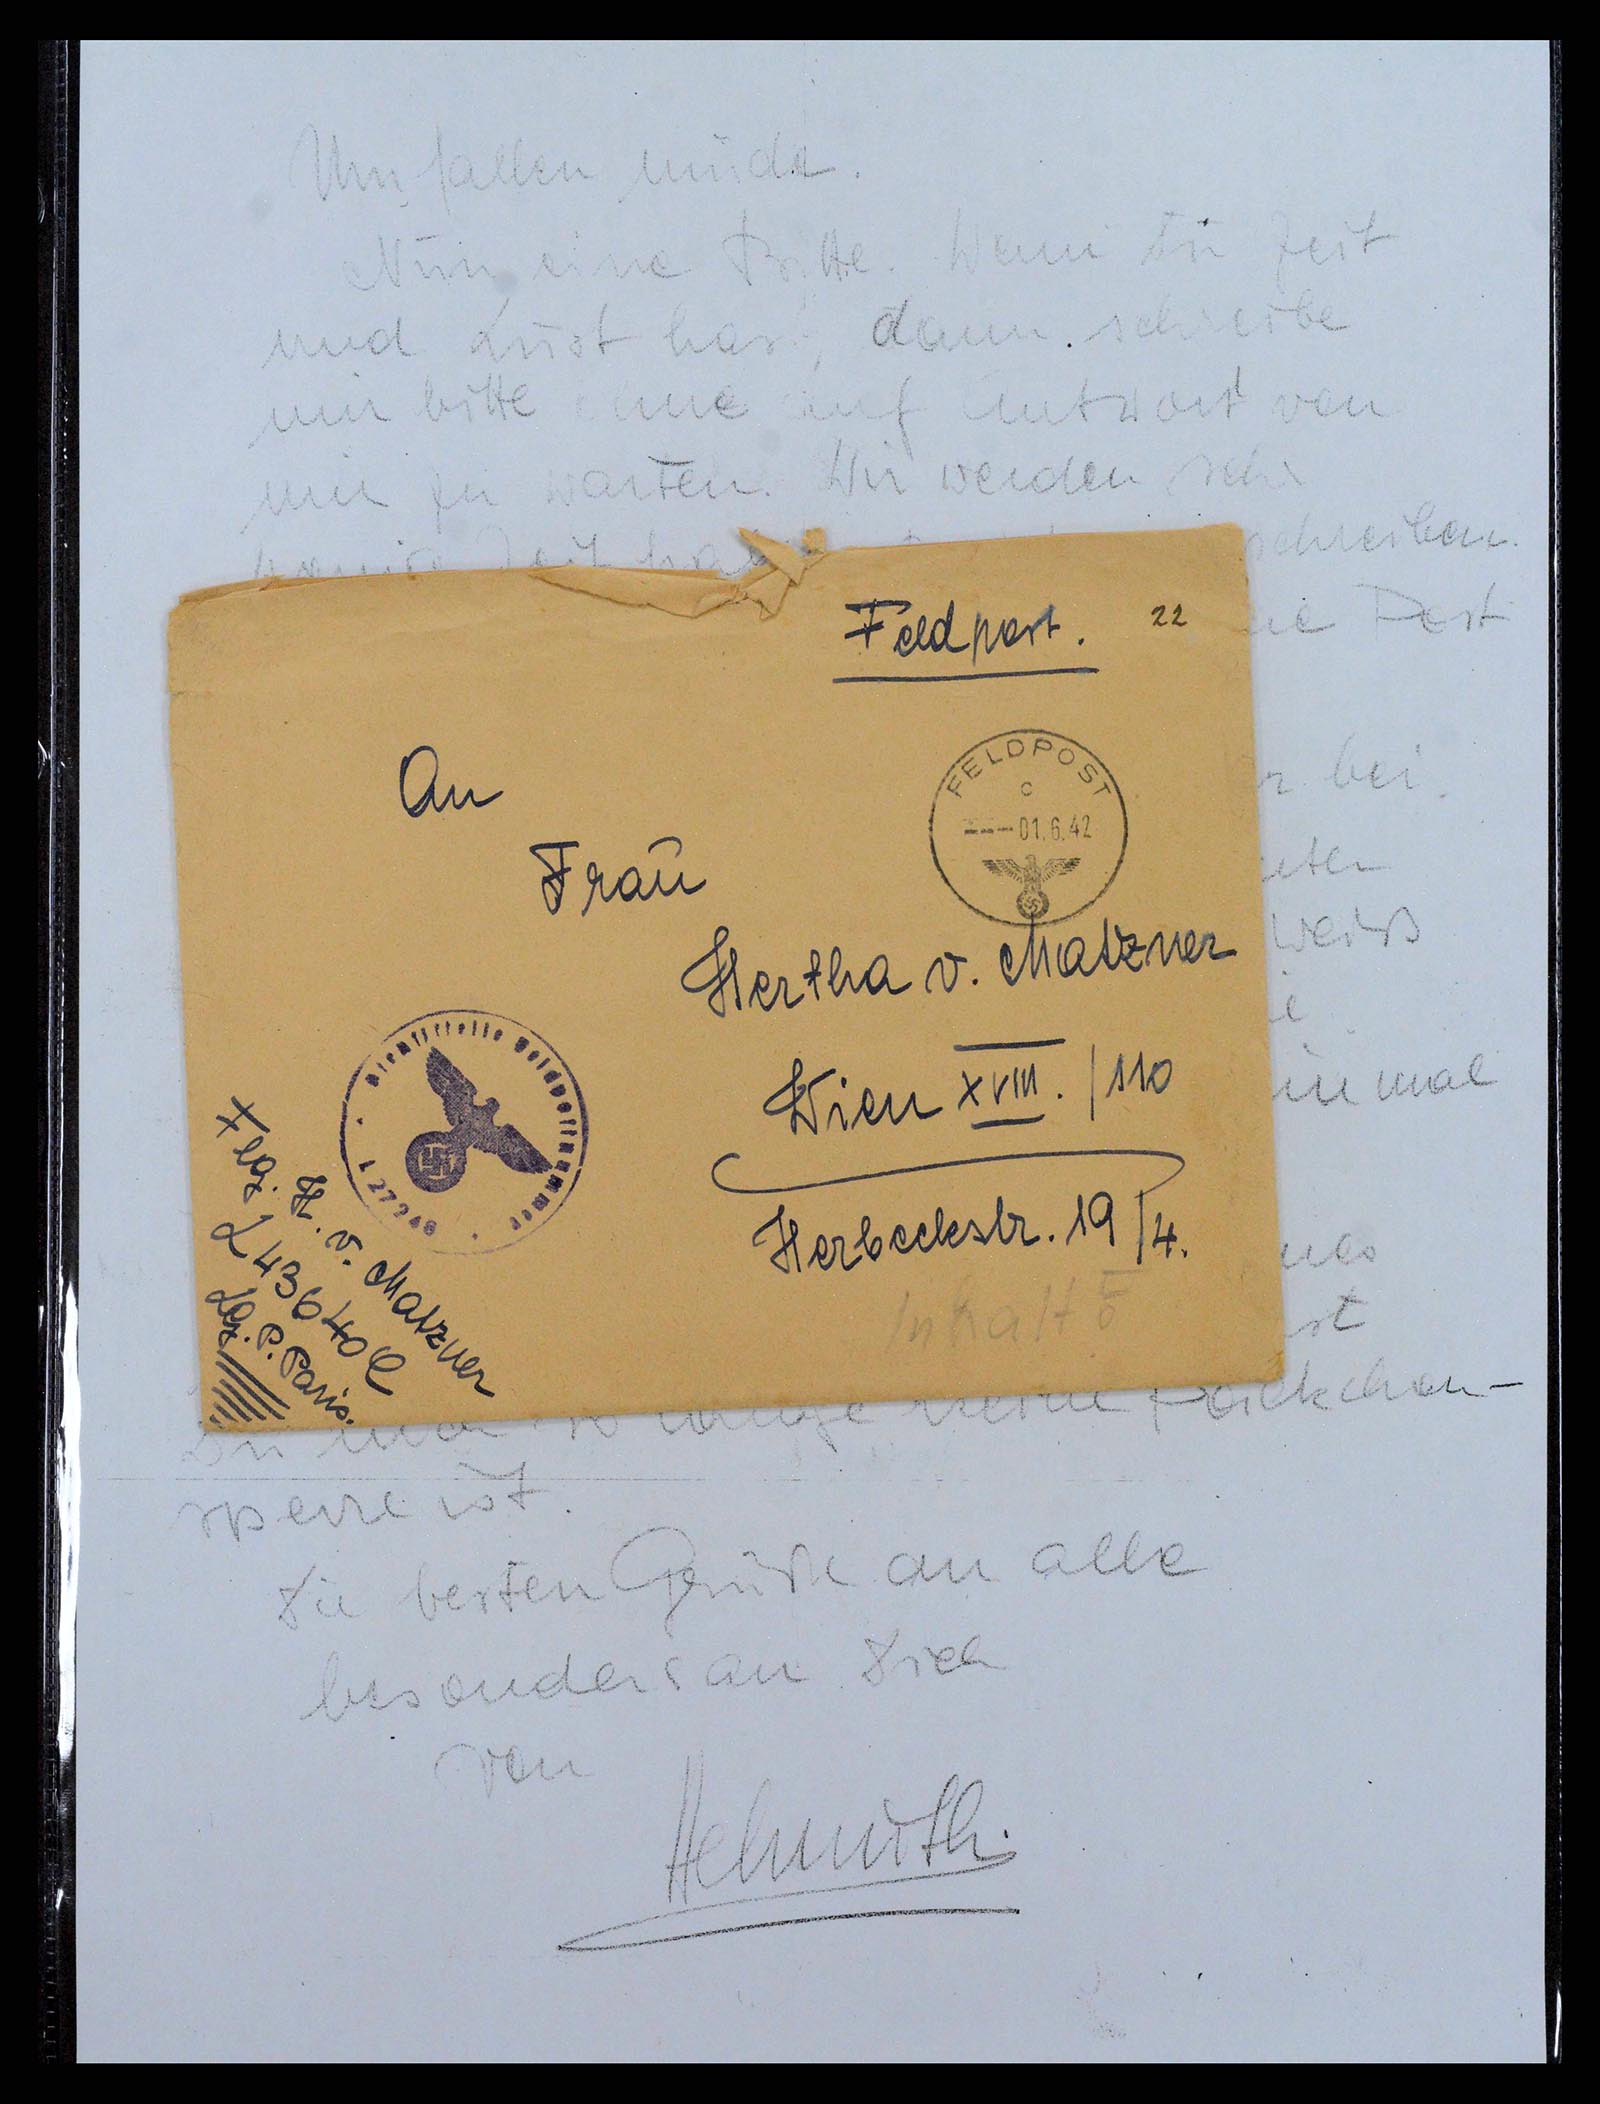 Umfallen müde.
Nun eine Bitte. Wenn Du Zeit
und Lust hast, dann schreibe
mir bitte ohne auf Antwort von
mir zu warten. Wir werden sehr
wenig Zeit schreiben.
Post
Feldpost. 22
An
Frau
Hertha v. Matzner
Wien XVIII. /110
Herbeckstr. 19/4.
Inhalt 5
FELDPOST
c
---01.6.42
Dienststelle Feldpostnummer
L 27248
H. v. Matzner
L 43640 C
Lg. P. Paris.
bei
weiß
einmal
so lange keine Päckchen-
sperre ist.
Die besten Grüße an alle
besonders an Dich
von
Helmuth.